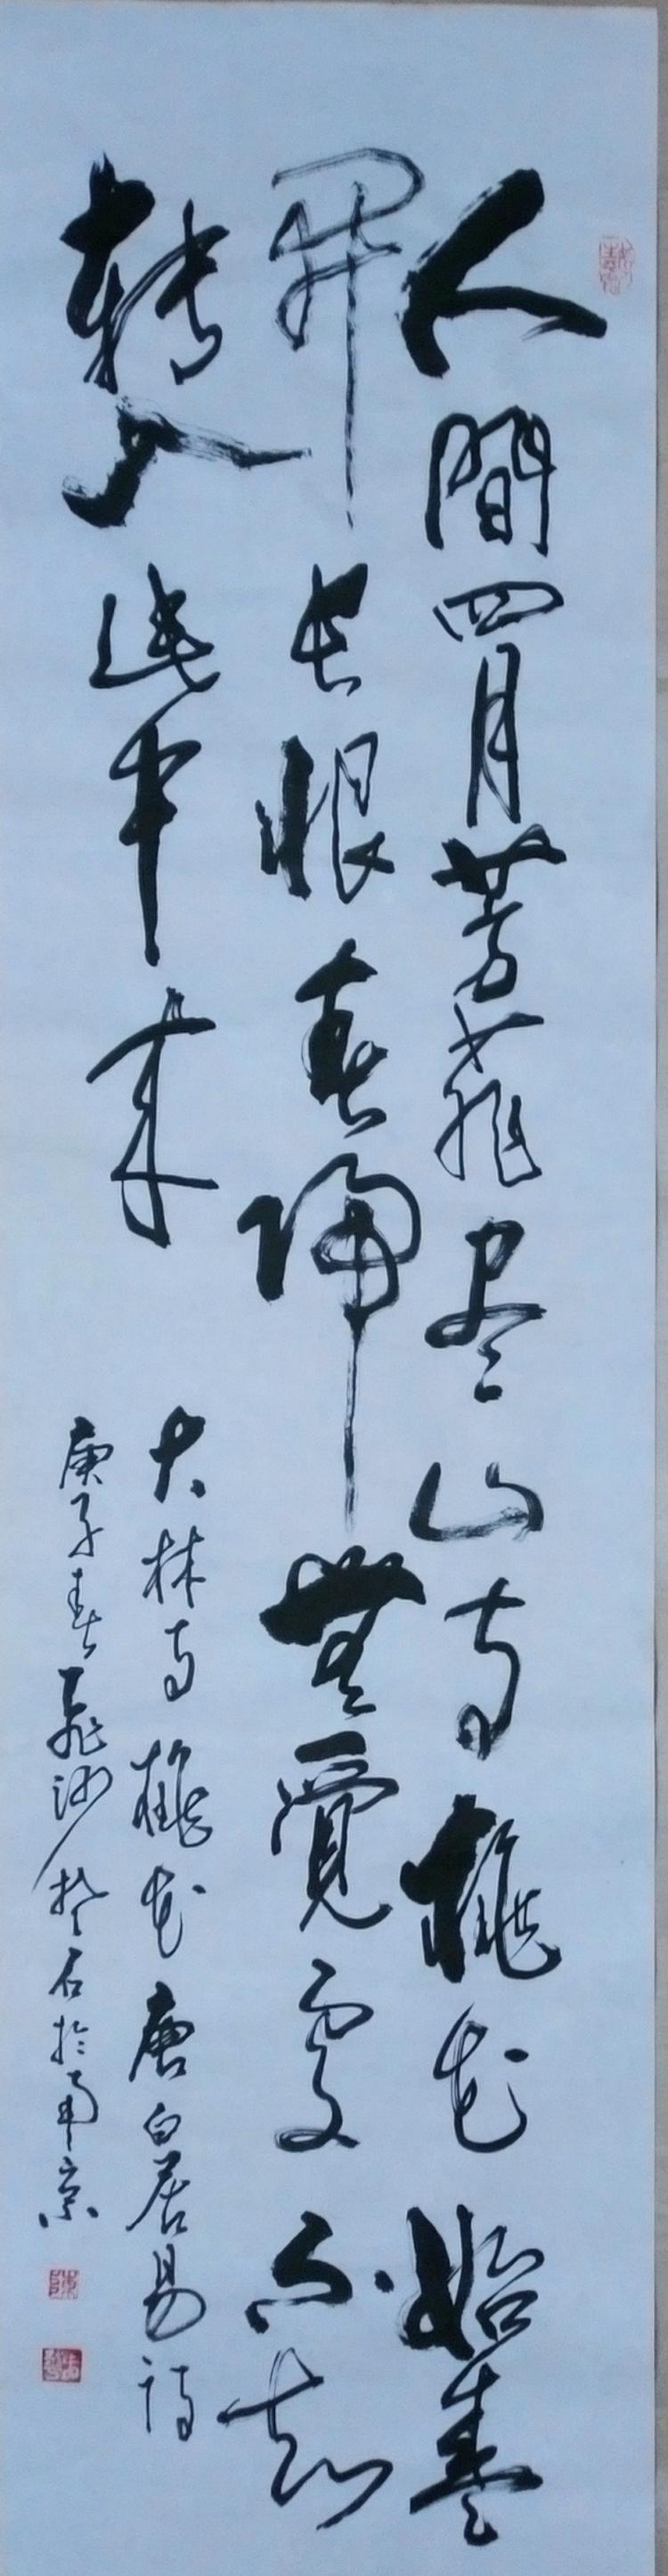 人間四月芳菲尽山寺桃花始盛
開長恨春歸無覺處不知
轉入此中來
大林寺桃花唐白居易詩
庚子春飛沙石於南京